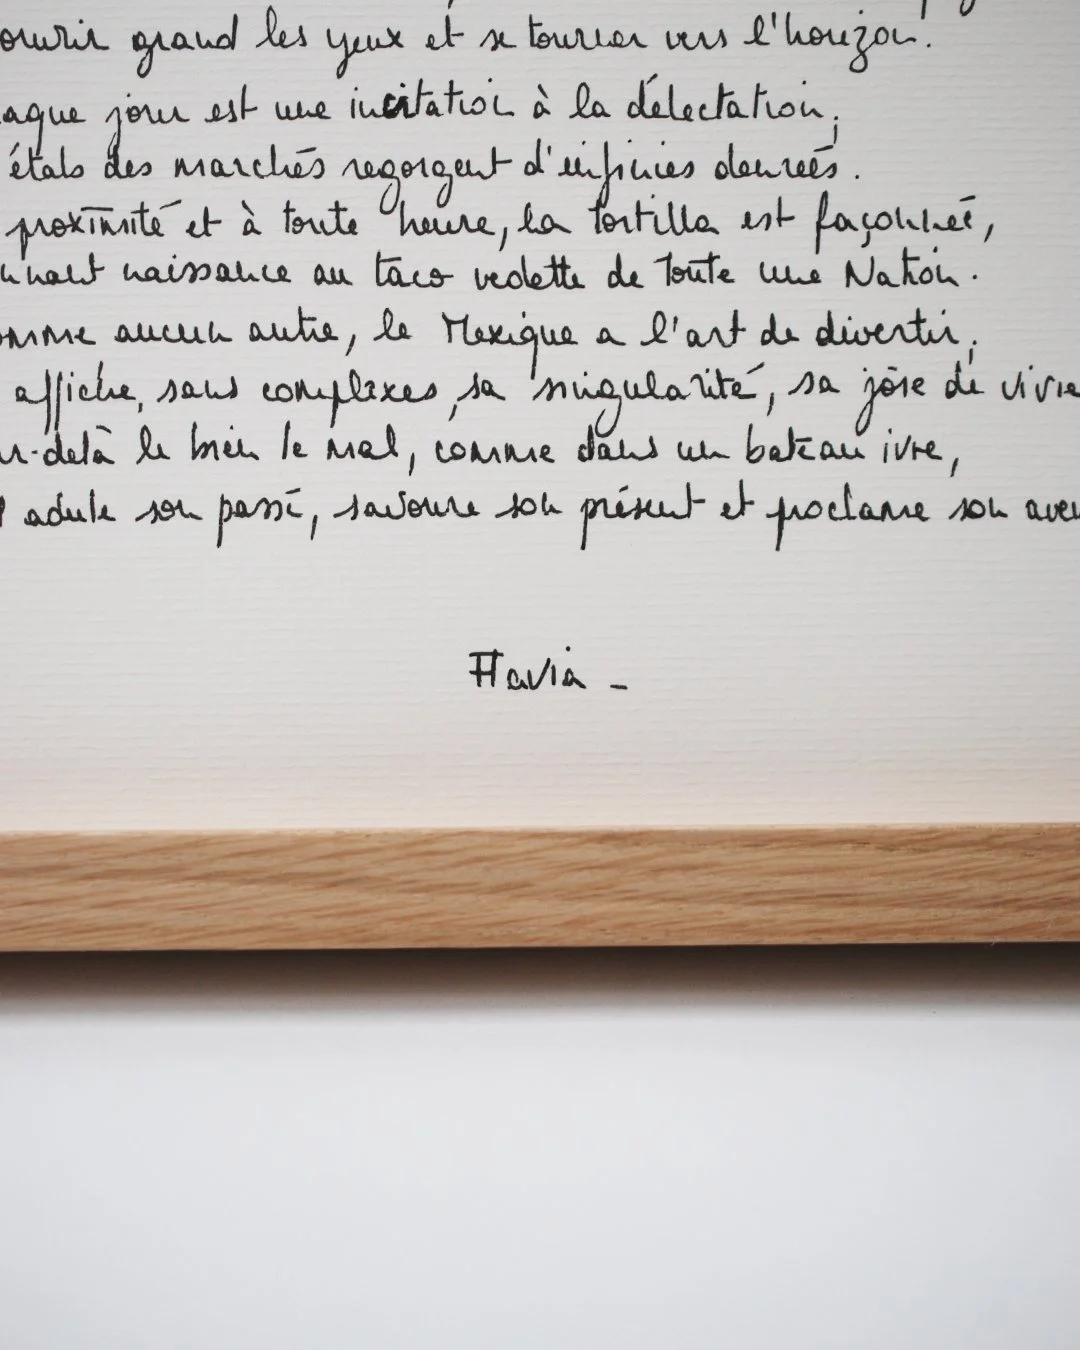 ouvrir grand les yeux et se tourner vers l'horizon.
aque jour est une incitation à la délectation,
étals des marchés regorgent d'infinies denrées.
proximité et à toute heure, la tortilla est façonnée,
nnant naissance au taco vedette de toute une Nation.
omme aucun autre, le Mexique a l'art de divertir,
affiche, sans complexes, sa singularité, sa joie de vivre
r-delà le bien le mal, comme dans un bateau ivre,
adule son passé, savoure son présent et proclame son aven
Flavia -